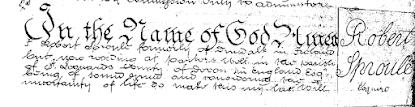 In the Name of God Amen
I Robert Sproule formerly of in Ireland
but now residing at Parkers Well in the parish
of St Leonards County of Devon in England Esqr
being of sound mind and considering the
uncertainty of life do make this my last Will
Robert
Sproule
Esquire